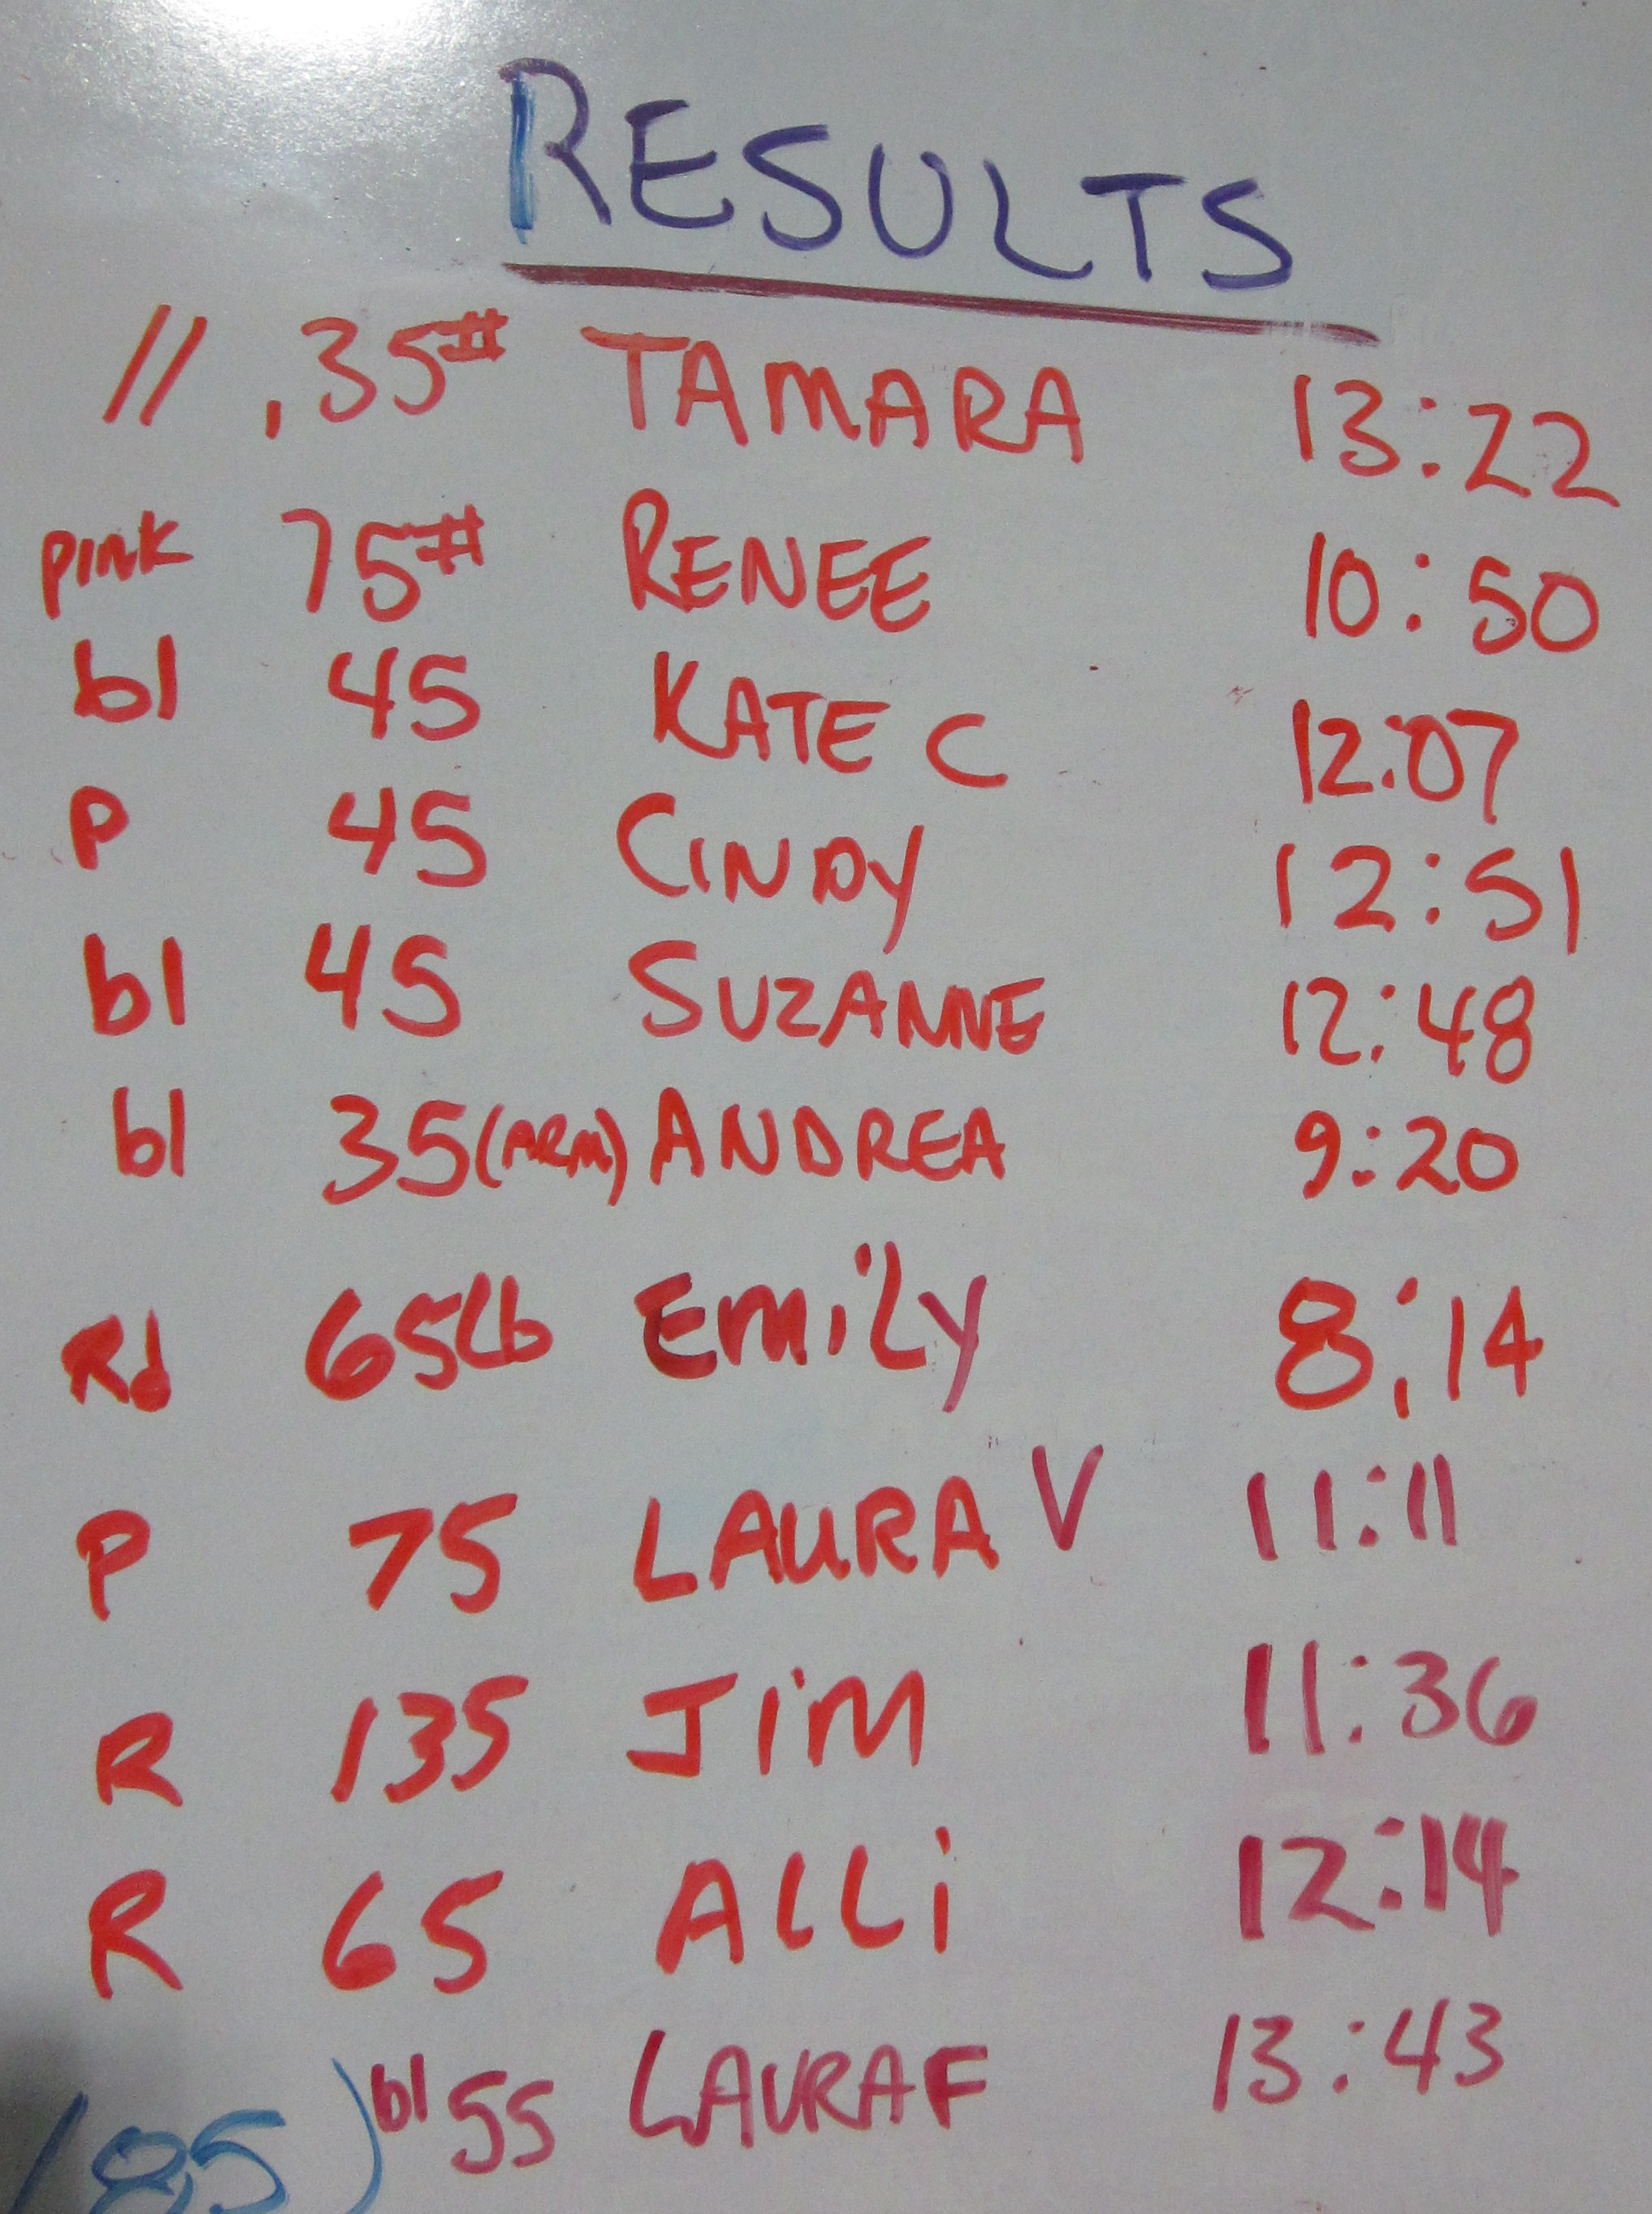 RESULTS
// , 35# TAMARA 13:22
pink 75# RENEE 10:50
bl 45 KATE C 12:07
P 45 CINDY 12:51
bl 45 SUZANNE 12:48
bl 35 (ARM) ANDREA 9:20
Rd 65Lb EMiLy 8:14
P 75 LAURA V 11:11
R 135 JiM 11:36
R 65 ALLi 12:14
bl 55 LAURA F 13:43
(85)